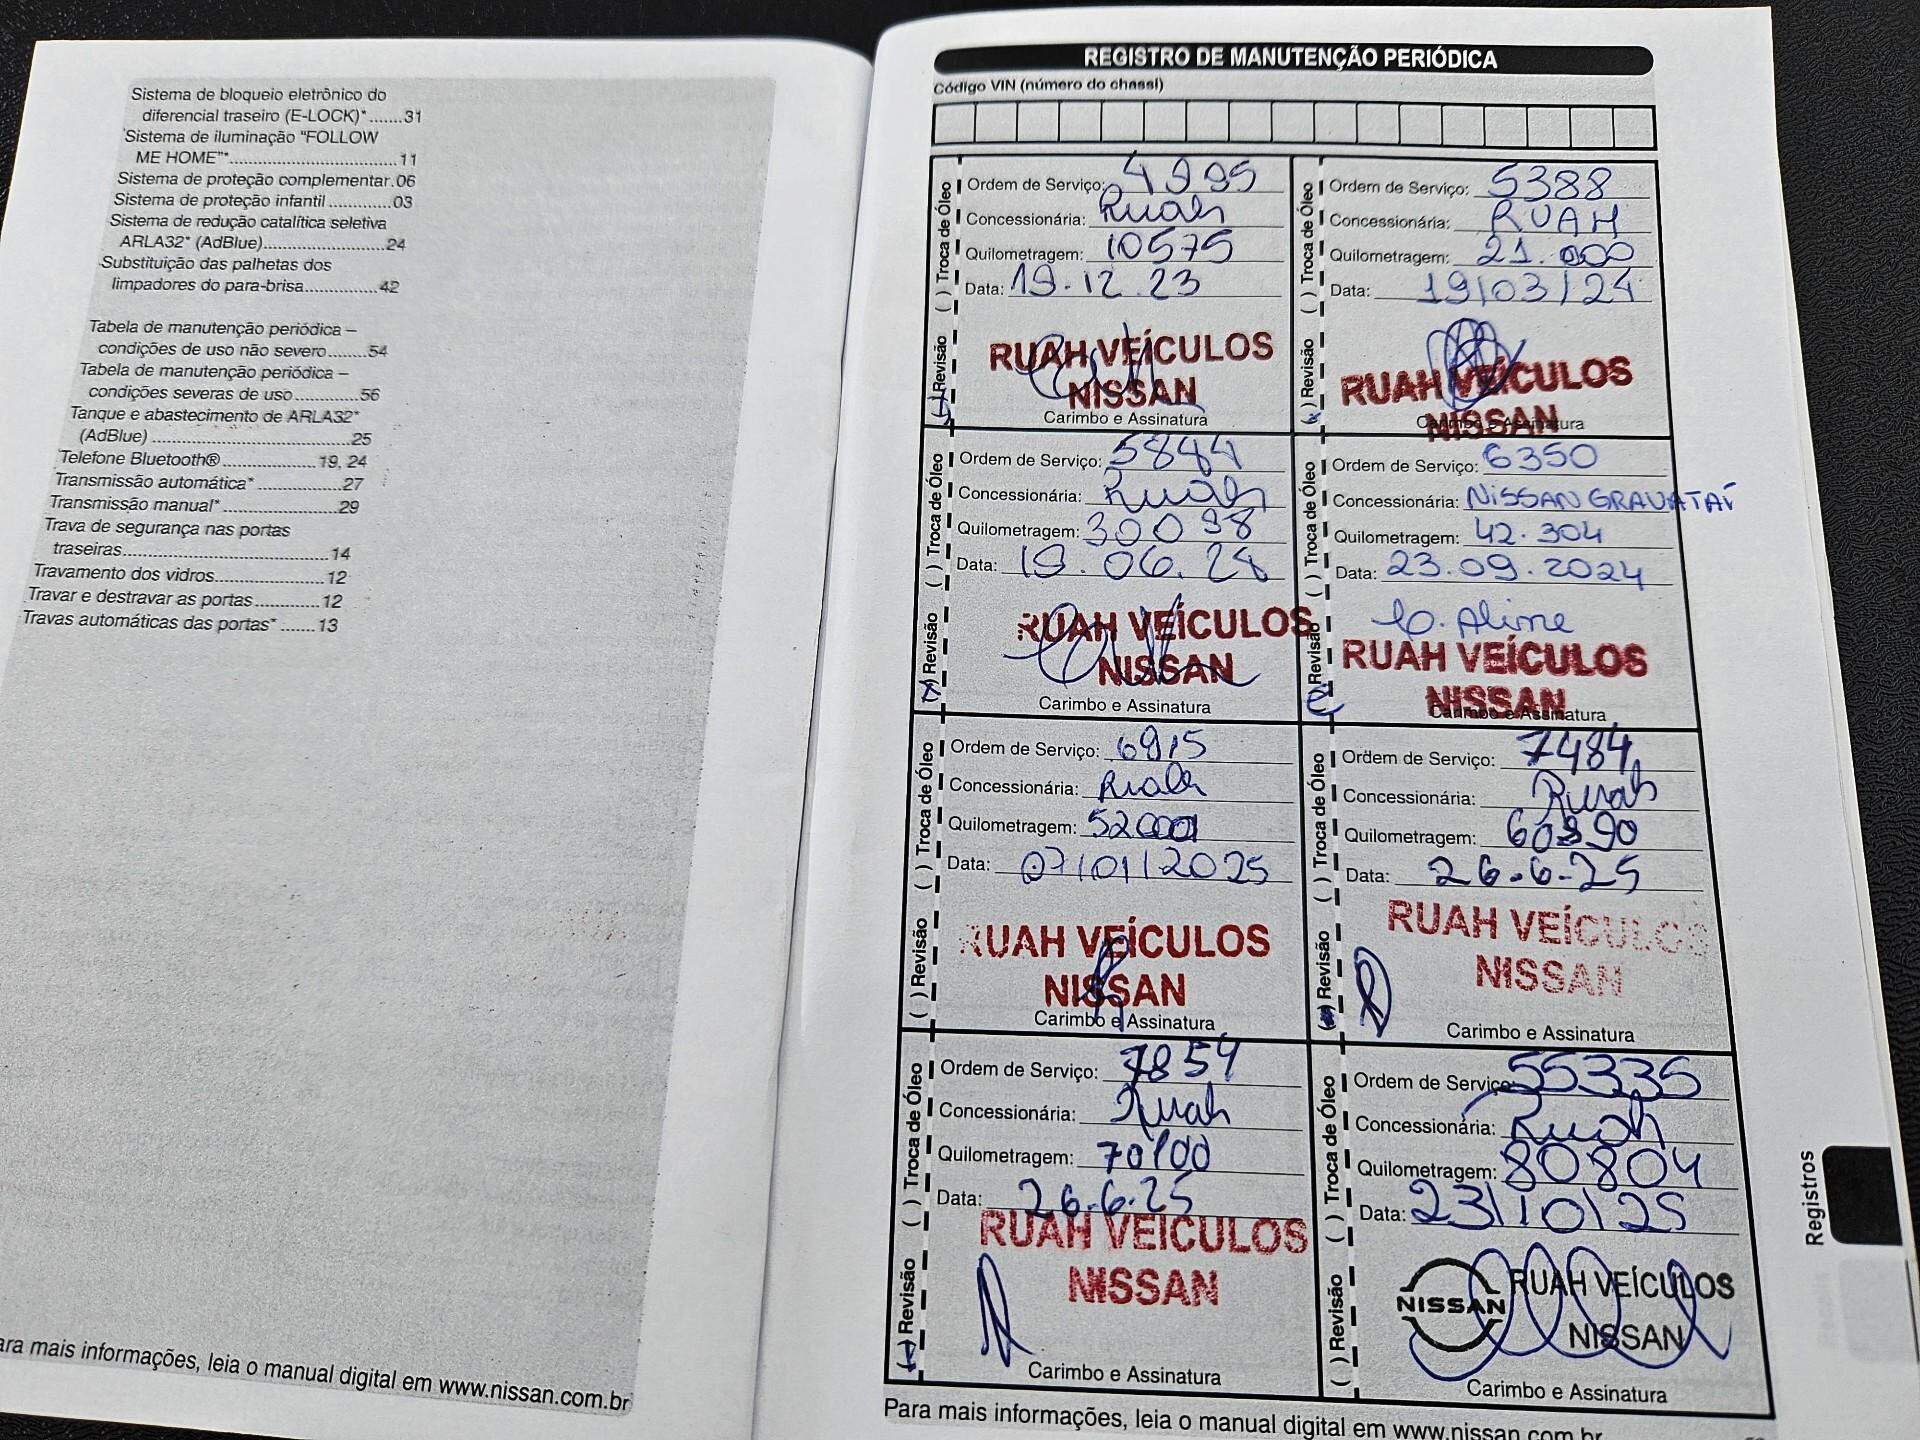 Sistema de bloqueio eletrônico do
diferencial traseiro (E-LOCK)*.......31
Sistema de iluminação "FOLLOW
ME HOME"*................................11
Sistema de proteção complementar.06
Sistema de proteção infantil............03
Sistema de redução catalítica seletiva
ARLA32* (AdBlue).......................24
Substituição das palhetas dos
limpadores do para-brisa..............42
Tabela de manutenção periódica –
condições de uso não severo........54
Tabela de manutenção periódica –
condições severas de uso..............56
Tanque e abastecimento de ARLA32*
(AdBlue)......................................25
Telefone Bluetooth®..................19, 24
Transmissão automática*.................27
Transmissão manual*.......................29
Trava de segurança nas portas
traseiras........................................14
Travamento dos vidros.....................12
Travar e destravar as portas.............12
Travas automáticas das portas*.......13
ara mais informações, leia o manual digital em www.nissan.com.br
REGISTRO DE MANUTENÇÃO PERIÓDICA
Código VIN (número do chassi)
( ) Revisão ( ) Troca de Óleo
Ordem de Serviço: 4995
Concessionária: Ruah
Quilometragem: 10575
Data: 19.12.23
RUAH VEÍCULOS
NISSAN
Carimbo e Assinatura
(x) Revisão ( ) Troca de Óleo
Ordem de Serviço: 5388
Concessionária: RUAH
Quilometragem: 21.000
Data: 19/03/24
RUAH VEÍCULOS
NISSAN
Carimbo e Assinatura
(x) Revisão ( ) Troca de Óleo
Ordem de Serviço: 5844
Concessionária: Ruah
Quilometragem: 30098
Data: 19.06.24
RUAH VEÍCULOS
NISSAN
Carimbo e Assinatura
( ) Revisão ( ) Troca de Óleo
Ordem de Serviço: 6350
Concessionária: NISSAN GRAVATAÍ
Quilometragem: 42.304
Data: 23.09.2024
Aline
RUAH VEÍCULOS
NISSAN
Carimbo e Assinatura
( ) Revisão ( ) Troca de Óleo
Ordem de Serviço: 6915
Concessionária: Ruah
Quilometragem: 52000
Data: 07/01/2025
RUAH VEÍCULOS
NISSAN
Carimbo e Assinatura
( ) Revisão ( ) Troca de Óleo
Ordem de Serviço: 7484
Concessionária: Ruah
Quilometragem: 60890
Data: 26.6.25
RUAH VEÍCULOS
NISSAN
Carimbo e Assinatura
( ) Revisão ( ) Troca de Óleo
Ordem de Serviço: 7854
Concessionária: Ruah
Quilometragem: 70100
Data: 26.6.25
RUAH VEÍCULOS
NISSAN
Carimbo e Assinatura
( ) Revisão ( ) Troca de Óleo
Ordem de Serviço: 55335
Concessionária: Ruah
Quilometragem: 80804
Data: 23/10/25
NISSAN
RUAH VEÍCULOS
NISSAN
Carimbo e Assinatura
Registros
Para mais informações, leia o manual digital em www.nissan.com.br